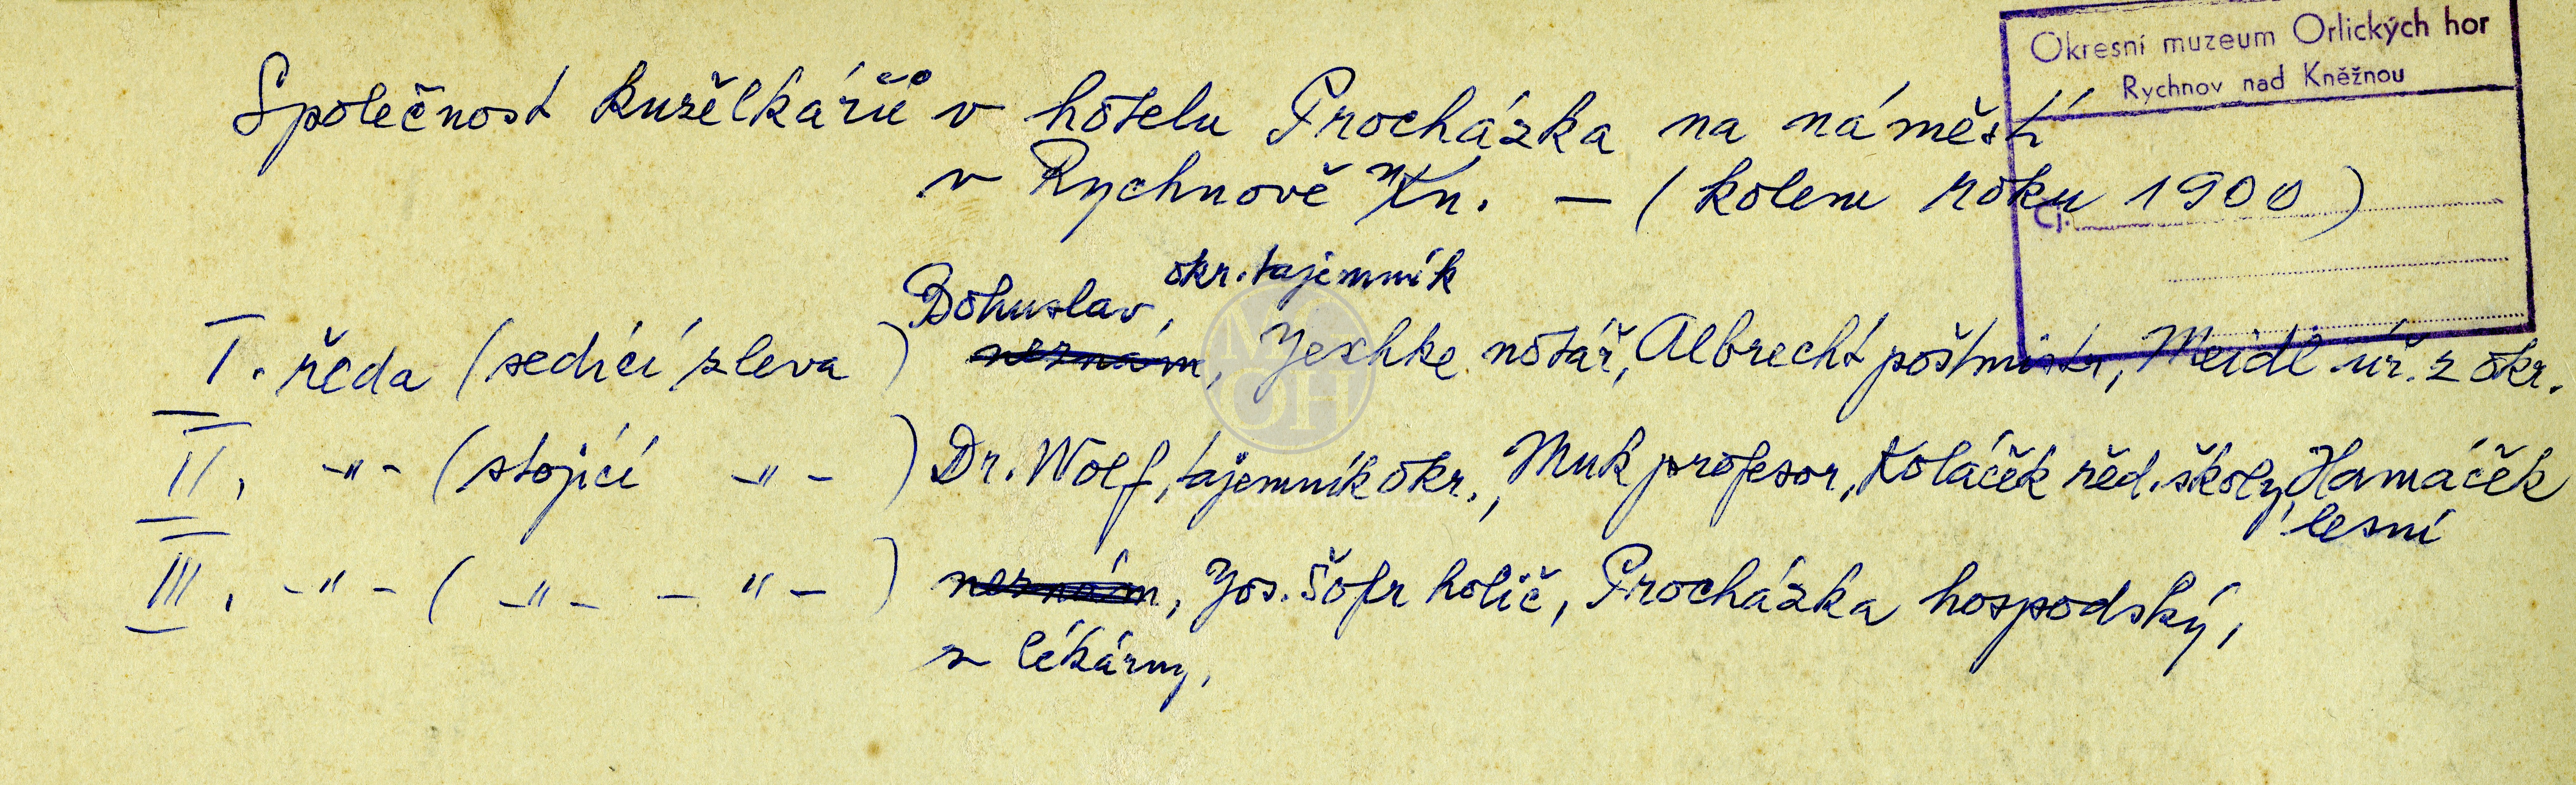 Okresní muzeum Orlických hor
Rychnov nad Kněžnou
Čj.
Společnost kuželkářů v hotelu Procházka na náměstí
v Rychnově n/Kn. – (kolem roku 1900)
Bohuslav, okr. tajemník
I. řada (sedící zleva) neznám, Jeschke notář, Albrecht poštmistr, Meidl úř. z okr.
II. -"- (stojící -"-) Dr. Wolf, tajemník okr., Muk profesor, Koláček řed. školy, Hamáček
lesní
III. -"- ( -"- - "- ) neznám, Jos. Šofr holič, Procházka hospodský,
z lékárny,